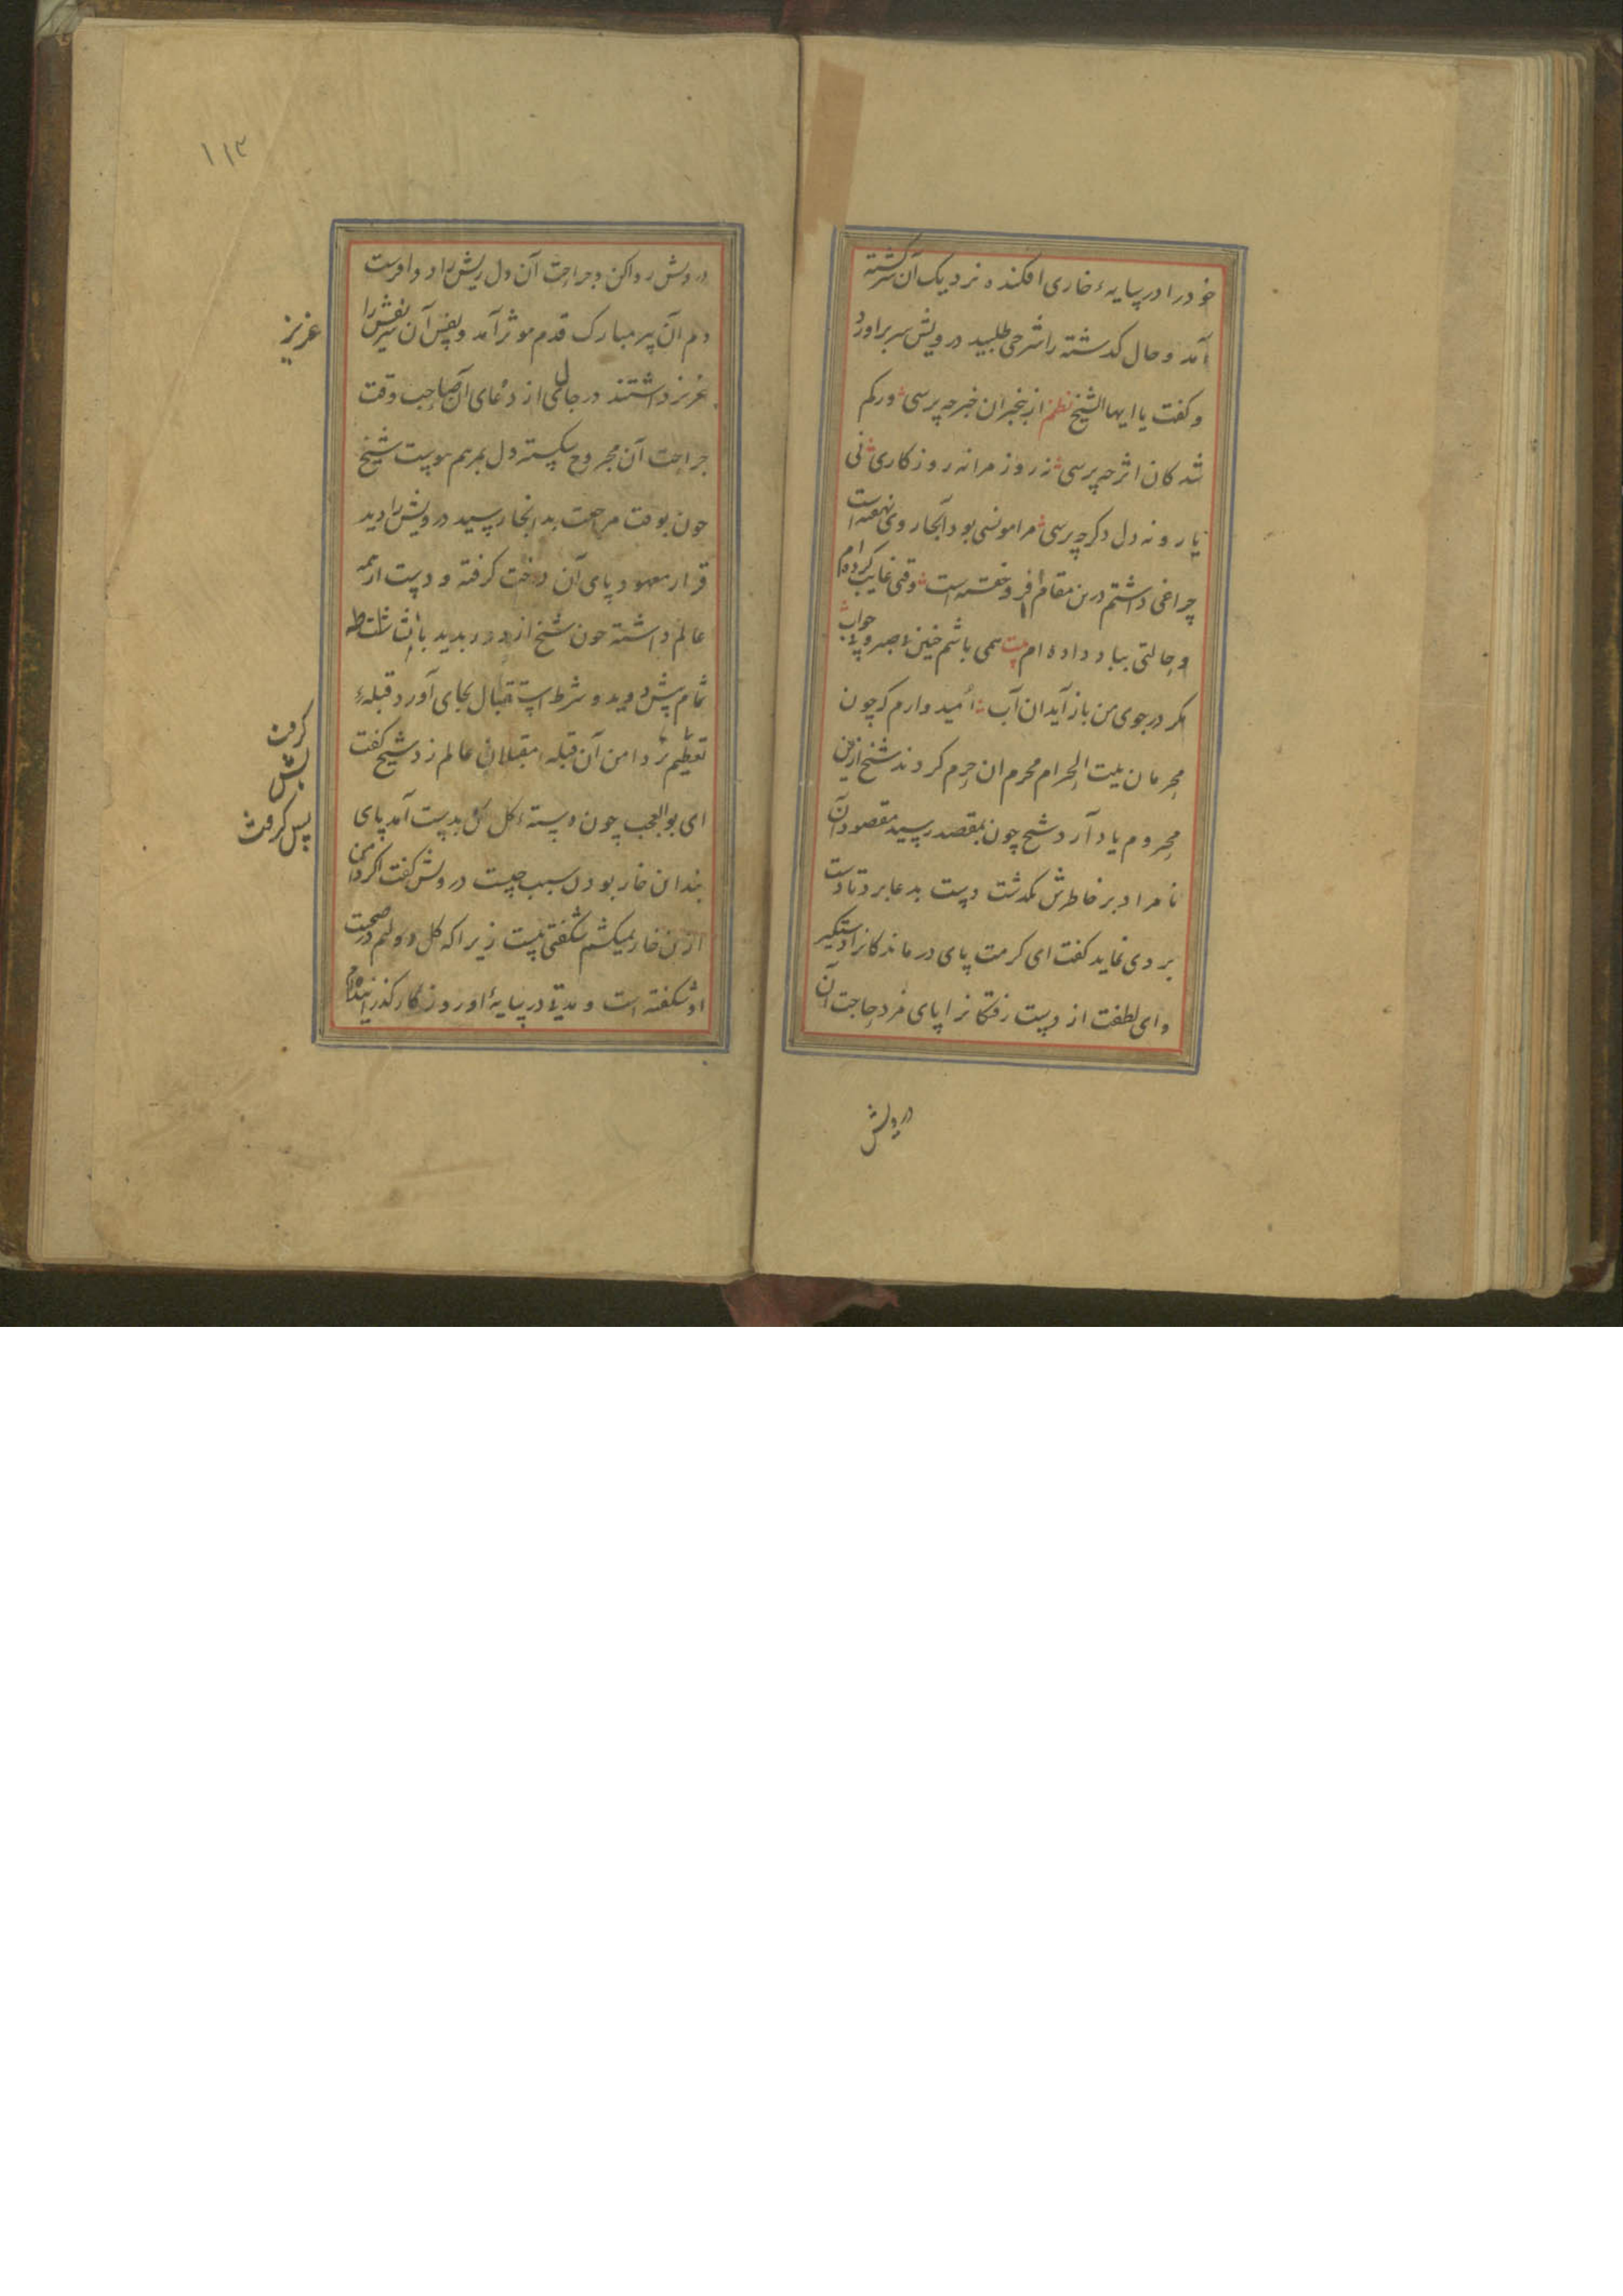 خود را در سایهٔ خاری افکنده نزدیک آن سرگشته
آمد و حال کدشته را شرحی طلبید درویش سر براورد
و کفت یا ایها الشیخ نظم از بیخبران خبر چه پرسی ورکم
شد کان اثر چه پرسی نه روز مرا نه روزکاری نی
یار و نه دل دکر چه پرسی مرا مونسی بود آنجا روی نهفته است
چراغی داشتم درین مقام فرو خفته است وقتی غایب کرده ام
و حالتی بباد داده ام بیت همی باشم خنین صبر و خواب
اکر در جوی من باز آید ان آب امیدوارم که چون
محرمان بیت الحرام محرم ان حرم کردند شیخ ازین
محروم یاد آرد شیخ چون بمقصد رسید مقصود آن
نامراد بر خاطرش بکدشت دست بدعا برد تا دست
بردی نماید کفت ای کرمت پای در ماندکانرا دستکیر
و ای لطفت از دست رفتکانرا پای مرد حاجت آن
درویش
۱۱۳
درویش روا کن و جراحت آن دل ریش را دوا فرست
دم آن پیر مبارک قدم موثر آمد و نفس آن نفش را
عزیز
عزیز داشتند در حال از دعای آن صاحب وقت
جراحت آن مجروح شکسته دل بمرهم پیوست شیخ
چون بوقت مراجعت بدانجا رسید درویش را دید
قرار معهود پای آن درخت کرفته و دست از همه
عالم داشته چون شیخ از دور بدید با نشاط
تمام پیش دوید و شرط استقبال بجای آورد قبلهٔ
تعظیم بر دامن آن قبله مقبلان عالم زد شیخ کفت
کرفت
پس کرفت
ای بوالعجب چون دسته کل بدست آمد پای
بند ان خار بودن سبب چیست درویش کفت اکر دامن
ازین خار نمیکشم شکفتی نیست زیرا که کل دولتم در صحبت
او شکفته است و مدتی در سایهٔ او روزکار کذرانیده ام